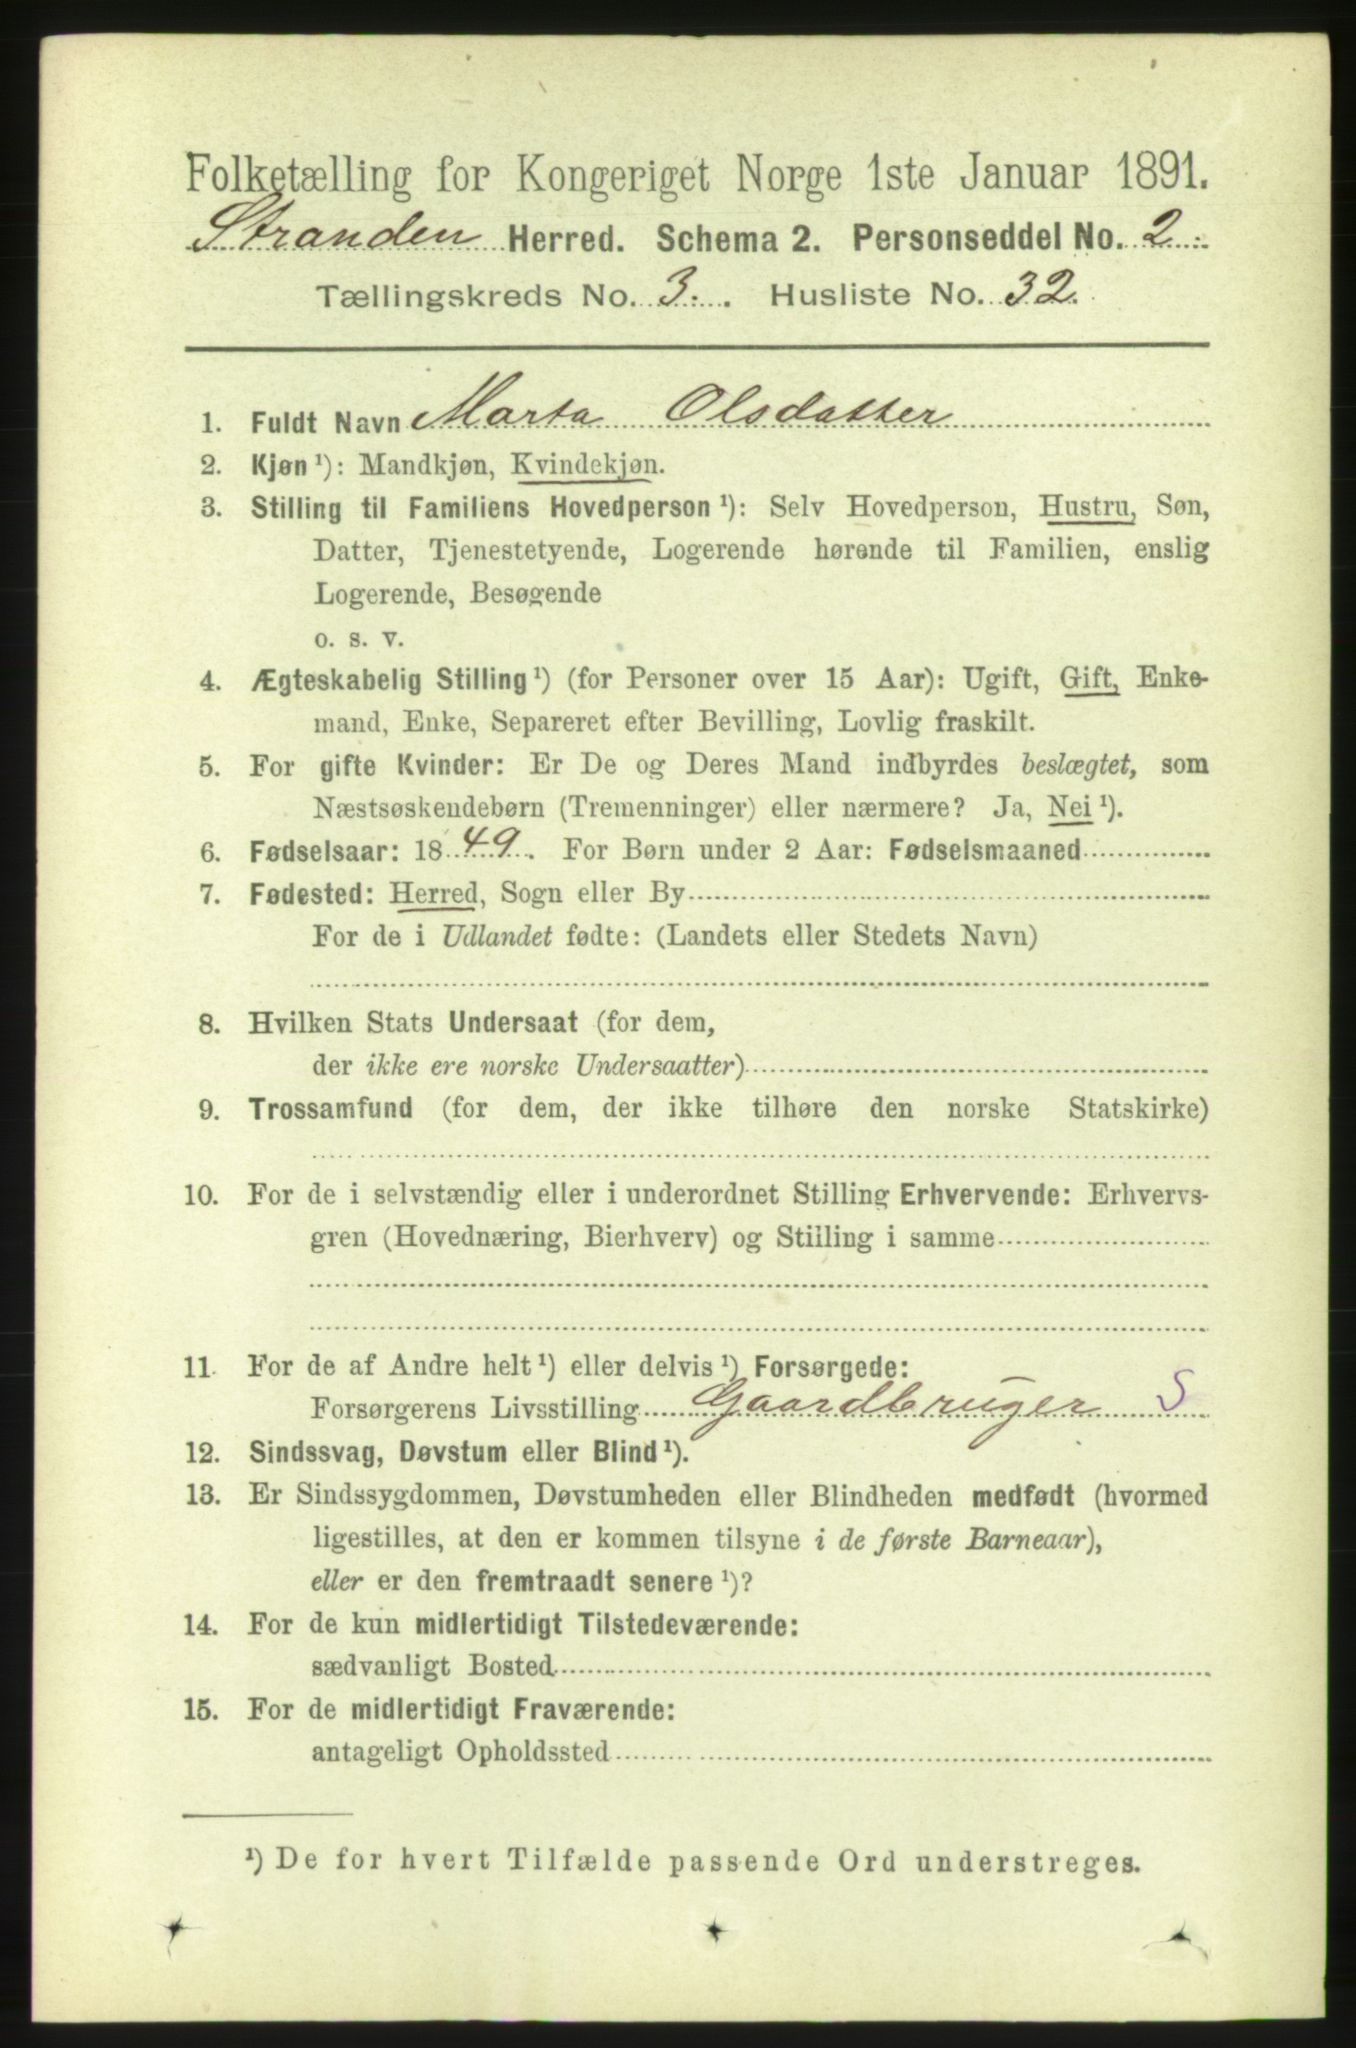 Folketælling for Kongeriget Norge 1ste Januar 1891.
Stranden Herred. Schema 2. Personseddel No. 2
Tællingskreds No. 3. Husliste No. 32.
1. Fuldt Navn Marta Olsdatter
2. Kjøn ¹): Mandkjøn, Kvindekjøn.
3. Stilling til Familiens Hovedperson ¹): Selv Hovedperson, Hustru, Søn,
Datter, Tjenestetyende, Logerende hørende til Familien, enslig
Logerende, Besøgende
o. s. v.
4. Ægteskabelig Stilling ¹) (for Personer over 15 Aar): Ugift, Gift, Enke-
mand, Enke, Separeret efter Bevilling, Lovlig fraskilt.
5. For gifte Kvinder: Er De og Deres Mand indbyrdes beslægtet, som
Næstsøskendebørn (Tremenninger) eller nærmere? Ja, Nei ¹).
6. Fødselsaar: 1849. For Børn under 2 Aar: Fødselsmaaned
7. Fødested: Herred, Sogn eller By
For de i Udlandet fødte: (Landets eller Stedets Navn)
8. Hvilken Stats Undersaat (for dem,
der ikke ere norske Undersaatter)
9. Trossamfund (for dem, der ikke tilhøre den norske Statskirke)
10. For de i selvstændig eller i underordnet Stilling Erhvervende: Erhvervs-
gren (Hovednæring, Bierhverv) og Stilling i samme
11. For de af Andre helt ¹) eller delvis ¹) Forsørgede:
Forsørgerens Livsstilling Gaardbruger S
12. Sindssvag, Døvstum eller Blind ¹).
13. Er Sindssygdommen, Døvstumheden eller Blindheden medfødt (hvormed
ligestilles, at den er kommen tilsyne i de første Barneaar),
eller er den fremtraadt senere ¹)?
14. For de kun midlertidigt Tilstedeværende:
sædvanligt Bosted
15. For de midlertidigt Fraværende:
antageligt Opholdssted
¹) De for hvert Tilfælde passende Ord understreges.